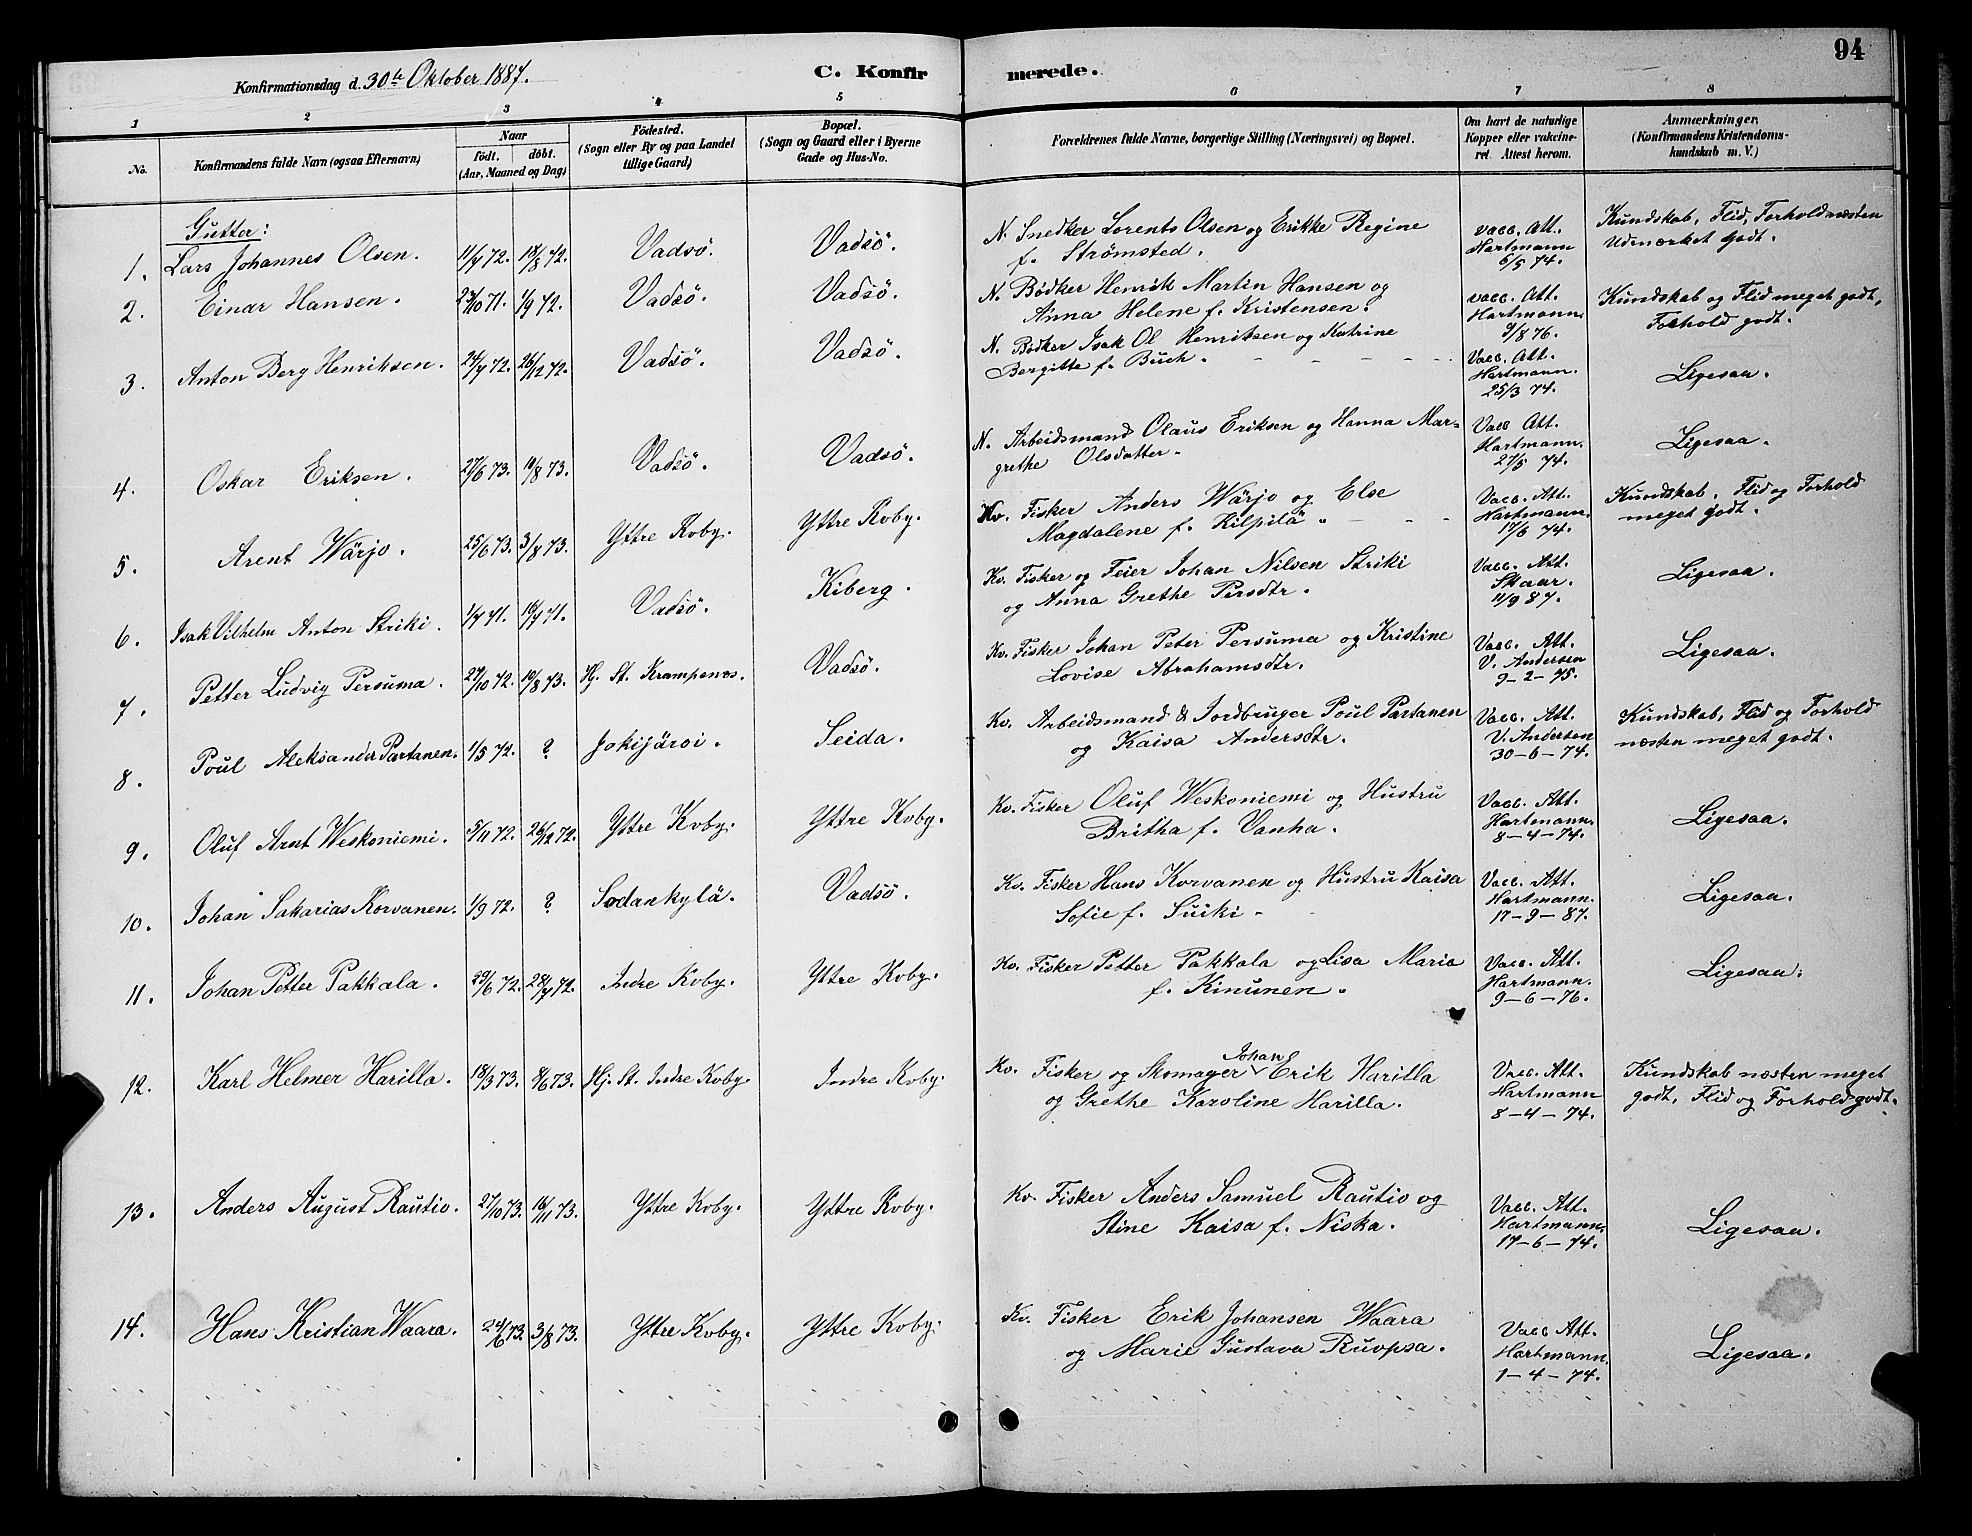 94
Konfirmationsdag d. 30te Oktober 1887.
C. Konfirmerede.
1 2 3 4 5 6 7 8
No.
Konfirmandens fulde Navn (ogsaa Efternavn)
Naar
født. døbt.
(Aar, Maaned og Dag)
Fødested.
(Sogn eller By og paa Landet
tillige Gaard)
Bopæl.
(Sogn og Gaard eller i Byerne
Gade og Hus-No.
Forældrenes fulde Navne, borgerlige Stilling (Næringsvei) og Bopæl.
Om havt de naturlige
Kopper eller vakcine-
ret. Attest herom.
Anmærkninger.
(Konfirmandens Kristendoms-
kundskab m. V.)
Gutter:
1. Lars Johannes Olsen. 11/7 72. 18/8 72. Vadsö. Vadsö.
N. Snedker Lorents Olsen og Erikke Regine
f. Strömsted.
vacc. Att.
Hartmann
6/5 74.
Kundskab, Flid, Forhold næsten
Udmærket godt.
2. Einar Hansen. 23/10 71. 1/9 72. Vadsö. Vadsö.
N. Bödker Henrik Martin Hansen og
Anna Helene f. Kristensen.
vacc. Att.
Hartmann.
9/8 76.
Kundskab og Flid meget godt,
Forhold godt.
3. Anton Berg Henriksen. 24/7 72. 26/12 72. Vadsö. Vadsö.
N. Bödker Isak Ol Henriksen og Katrine
Bergitte f. Buch.
Vacc. Att.
Hartmann.
25/3 74.
Ligesaa.
4. Oskar Eriksen. 27/6 73. 10/8 73. Vadsö. Vadsö.
N. Arbeidsmand Olaus Eriksen og Hanna Mar-
grethe Olsdatter.
Vacc Att.
Hartmann.
27/5 74.
Ligesaa.
5. Arent Wärjo. 25/6 73. 3/8 73. Yttre Koby. Yttre Koby.
Kv. Fisker Anders Wärjo og Else
Magdalene f. Kilpilä.
Vacc. Att.
Hartmann.
17/6 74.
Kundskab, Flid og Forhold
meget godt.
6. Isak Vilhelm Anton Striki. 1/7 71. 16/7 71. Vadsö. Kiberg.
Kv. Fisker og Feier Johan Nilsen Striki
og Anna Grethe Persdtr.
Vacc. Att.
Skaar.
11/9 87.
Ligesaa.
7. Petter Ludvig Persuma. 27/10 72. 10/8 73. Hj. St. Krampenæs. Vadsö.
Kv. Fisker Johan Peter Persuma og Kristine
Lovise Abrahamsdtr.
Vacc. Att.
V. Andersen
9-2-75.
Ligesaa.
8. Poul Aleksander Partanen. 1/5 72. ? Jokijärvi. Seida.
Kv. Arbeidsmand & Jordbruger Poul Partanen
og Kaisa Andersdtr.
Vacc. Att.
V. Andersen
30-6-74.
Kundskab, Flid og Forhold
næsten meget godt.
9. Oluf Arnt Weskoniemi. 5/11 72. 26/12 72. Yttre Koby. Yttre Koby.
Kv. Fisker Oluf Weskoniemi og Hustru
Britha f. Vanha.
Vacc. Att.
Hartmann.
8-4-74.
Ligesaa.
10. Johan Sakarias Korvanen. 1/9 72. ? Sodankylä. Vadsö.
Kv. Fisker Hans Korvanen og Hustru Kaisa
Sofie f. Suiki
Vacc. Att.
Hartmann.
17-9-87.
Ligesaa.
11. Johan Petter Pakkala. 29/6 72. 28/7 72. Indre Koby. Yttre Koby.
Kv. Fisker Petter Pakkala og Lisa Maria
f. Kinunen.
Vacc. Att.
Hartmann.
9-6-76.
Ligesaa.
12. Karl Helmer Harilla. 18/3 73. 8/6 73. Hj. St. Indre Koby. Indre Koby.
Kv. Fisker og Skomager Johan Erik Harilla
og Grethe Karoline Harilla.
Vacc. Att.
Hartmann
8-4-74.
Kundskab næsten meget
godt, Flid og Forhold godt.
13. Anders August Rautio. 27/10 73. 16/11 73. Yttre Koby. Yttre Koby.
Kv. Fisker Anders Samuel Rautio og
Stine Kaisa f. Niska.
Vacc. Att.
Hartmann.
17-6-74.
Ligesaa.
14. Hans Kristian Waara. 24/6 73. 3/8 73. Yttre Koby. Yttre Koby.
Kv. Fisker Erik Johansen Waara
og Marie Gustava Ruopsa.
Vacc Att.
Hartmann.
1-4-74.
Ligesaa.